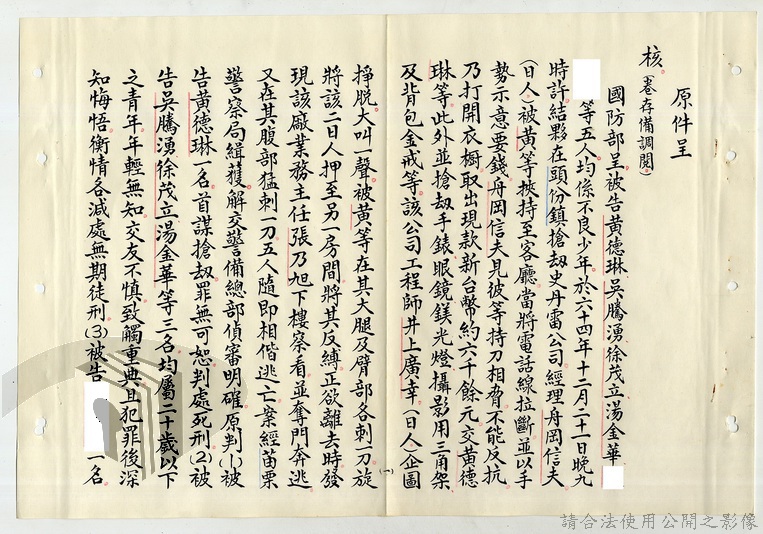 原件呈
核。(卷存備調閱)
國防部呈被告黃德琳吳騰湧徐茂立湯金華
等五人均係不良少年於六十四年十二月二十一日晚九
時許結夥在頭份鎮搶劫史丹雷公司經理舟岡信夫
(日人)被黃等挾持至客廳當將電話線拉斷並以手
勢示意要錢舟岡信夫見彼等持刀相脅不能反抗
乃打開衣櫥取出現款新台幣約六千餘元交黃德
琳等此外並搶劫手錶眼鏡鎂光燈攝影用三角架
及背包金戒等該公司工程師井上廣幸(日人)企圖
(一)
掙脫大叫一聲被黃等在其大腿及臂部各刺一刀旋
將該二日人押至另一房間將其反縛正欲離去時發
現該廠業務主任張乃旭下樓察看並奪門奔逃
又在其腹部猛刺一刀五人隨即相偕逃亡案經苗栗
警察局緝獲解交警備總部偵審明確原判(1)被
告黃德琳一名首謀搶劫罪無可恕判處死刑(2)被
告吳騰湧徐茂立湯金華等三名均屬二十歲以下
之青年年輕無知交友不慎致觸重典且犯罪後深
知悔悟衡情各減處無期徒刑(3)被告
一名
請合法使用公開之影像